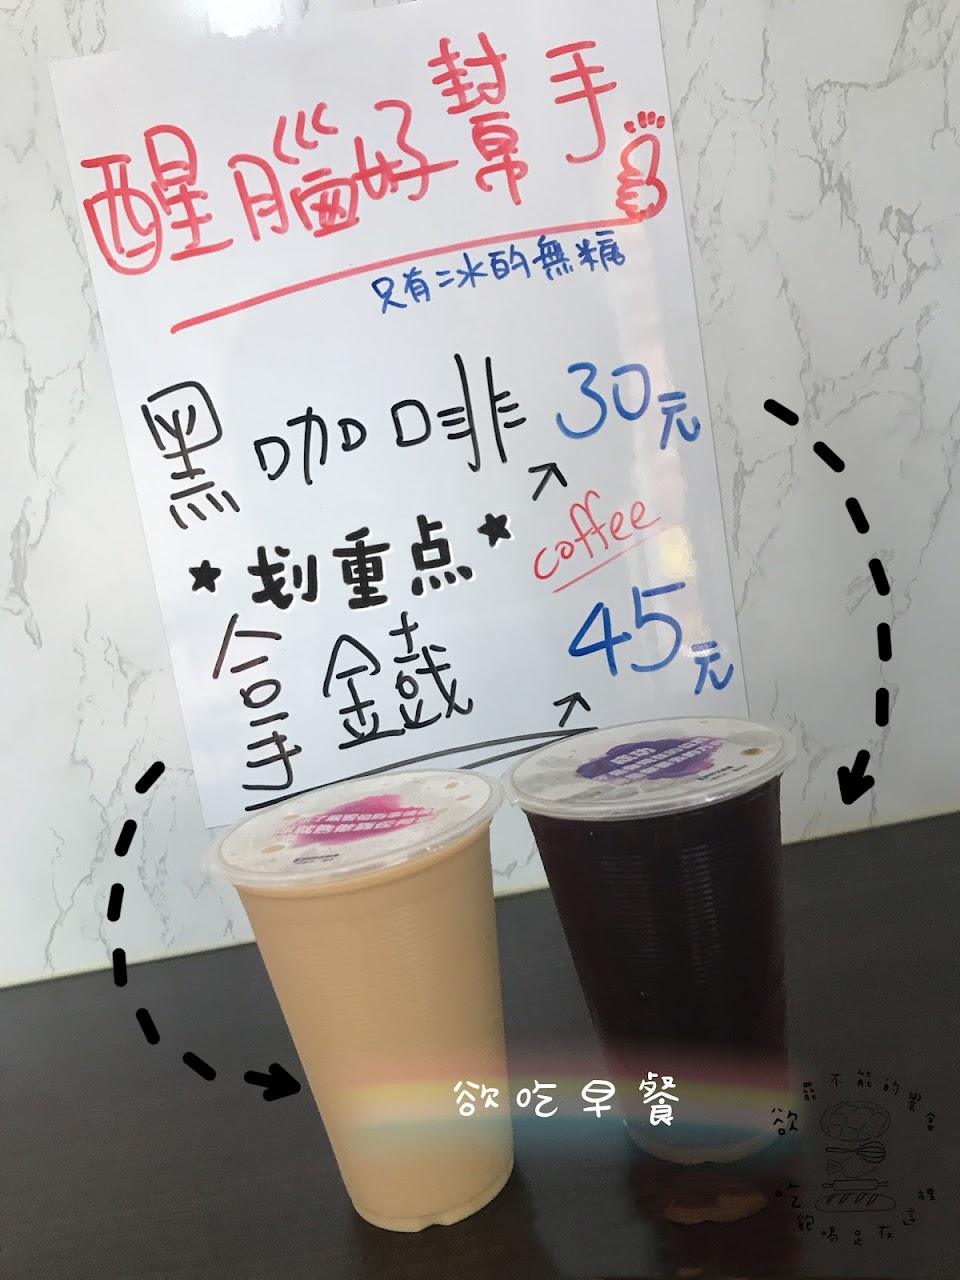 醒腦好幫手
只有冰的無糖
黑咖啡 30元
*划重点*
coffee
拿鐵 45元
欲吃早餐
罷不能的饗宴
欲
吃
飽喝足在這裡